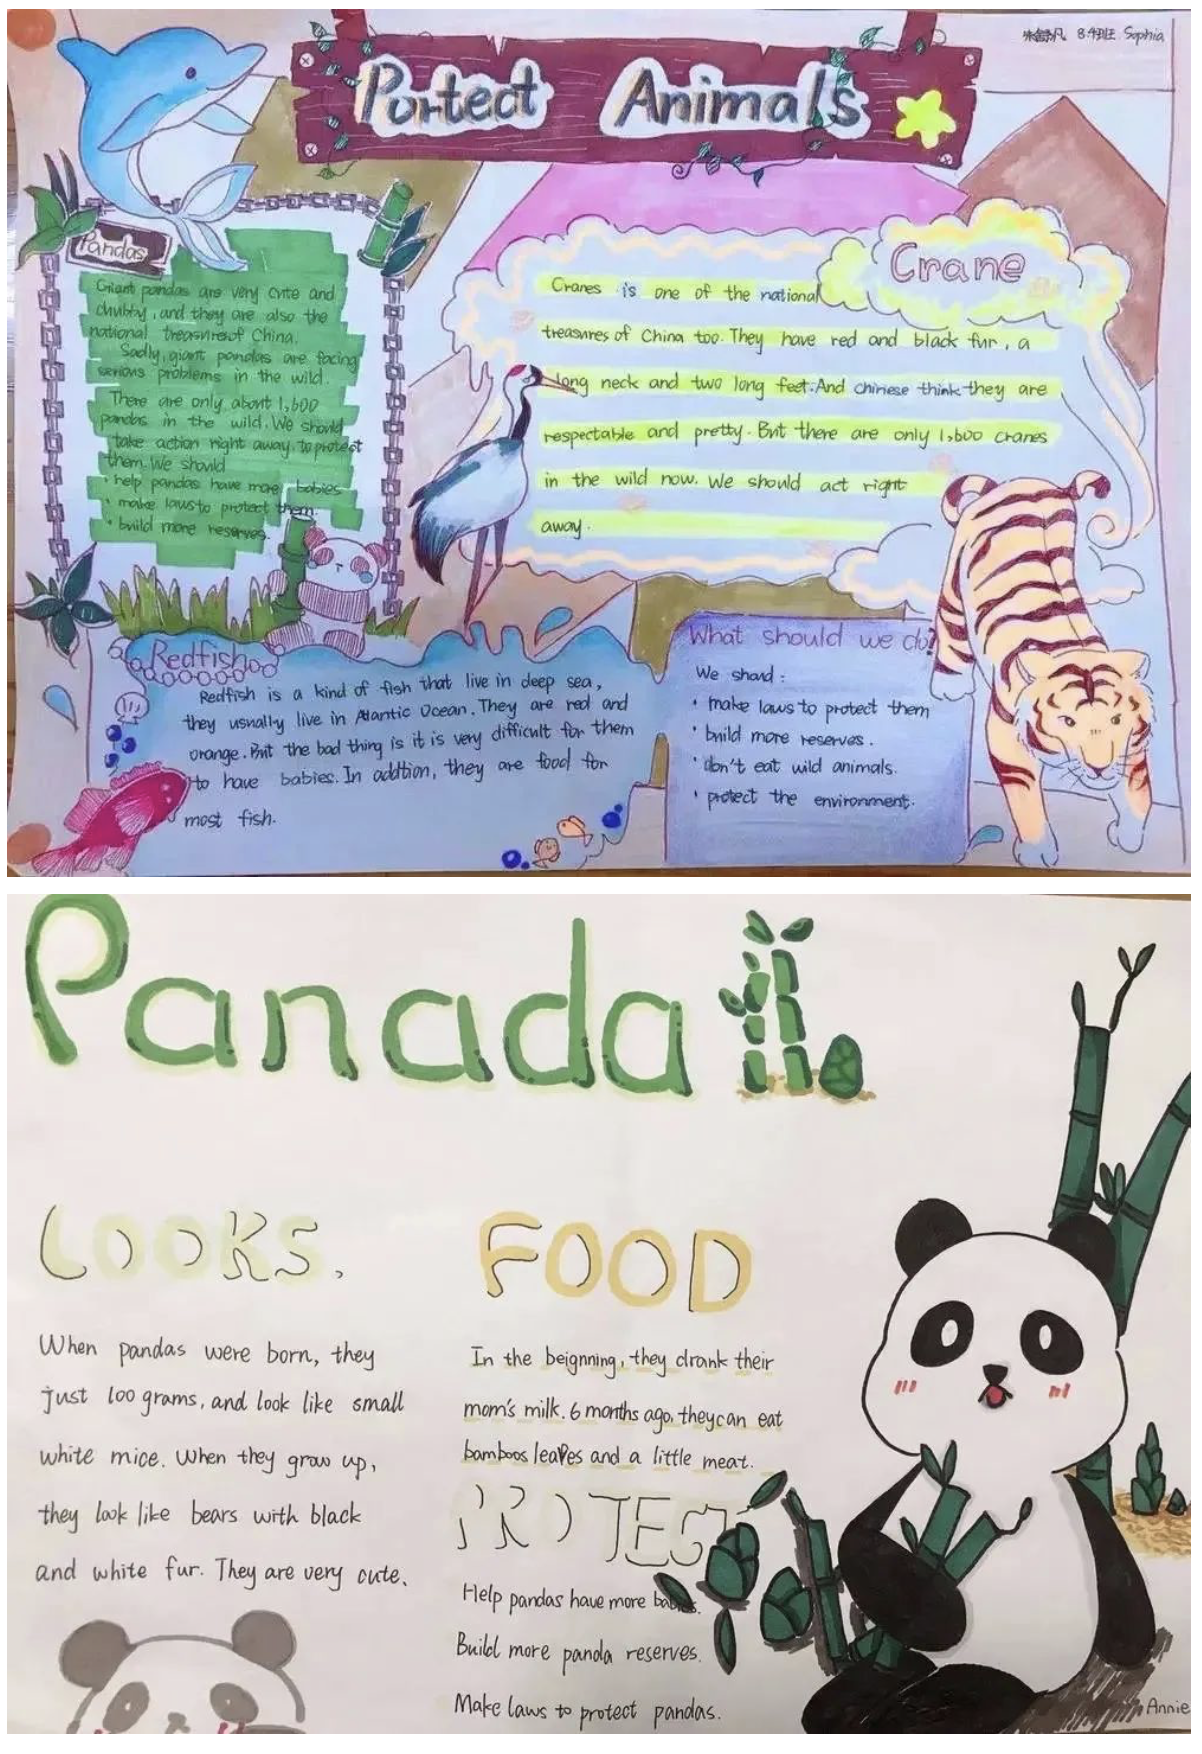 8.4班 Sophia
Portect Animals
Pandas
Giant pandas are very cute and
chubby, and they are also the
national treasures of China.
Sadly, giant pandas are facing
serious problems in the wild.
There are only about 1,600
pandas in the wild. We should
take action right away, to protect
them. We should
· help pandas have more babies
· make laws to protect them.
· build more reserves.
Crane
Cranes is one of the national
treasures of China too. They have red and black fur, a
long neck and two long feet. And chinese think they are
respectable and pretty. But there are only 1,600 cranes
in the wild now. We should act right
away.
Redfish
Redfish is a kind of fish that live in deep sea,
they usually live in Atlantic Ocean. They are red and
orange. But the bad thing is it is very difficult for them
to have babies. In addtion, they are food for
most fish.
What should we do?
We shoud:
· make laws to protect them
· build more reserves.
· don't eat wild animals.
· protect the environment.
Panada
LOOKS.
When pandas were born, they
just 100 grams, and look like small
white mice. When they grow up,
they look like bears with black
and white fur. They are very cute.
FOOD
In the beignning, they drank their
mom's milk. 6 months ago, they can eat
bamboos leaves and a little meat.
PROTECT
Help pandas have more babies.
Build more panda reserves.
Make laws to protect pandas.
Annie